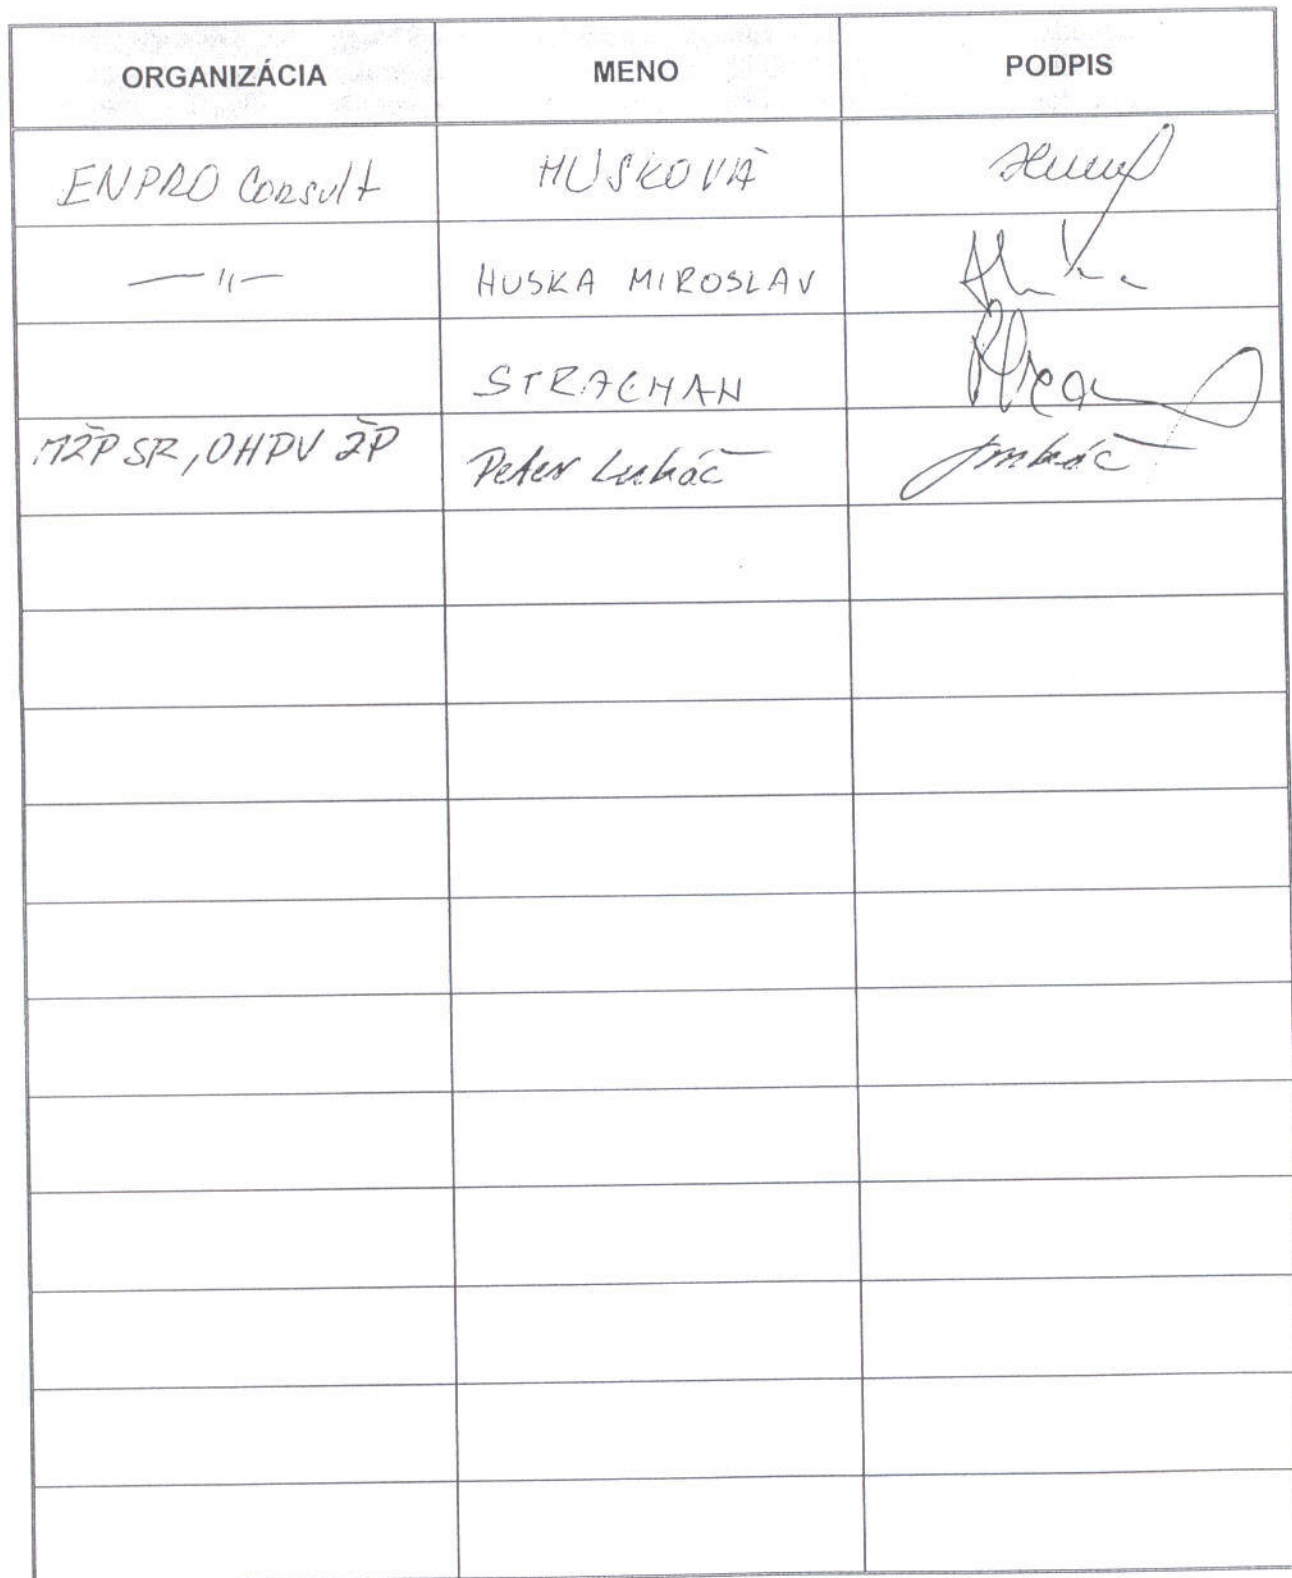 ORGANIZÁCIA MENO PODPIS
ENPRO Consult HUSKOVÁ
—"— HUSKA MIROSLAV
STRACHAN
MŽP SR, OHPV ŽP Peter Lukáč